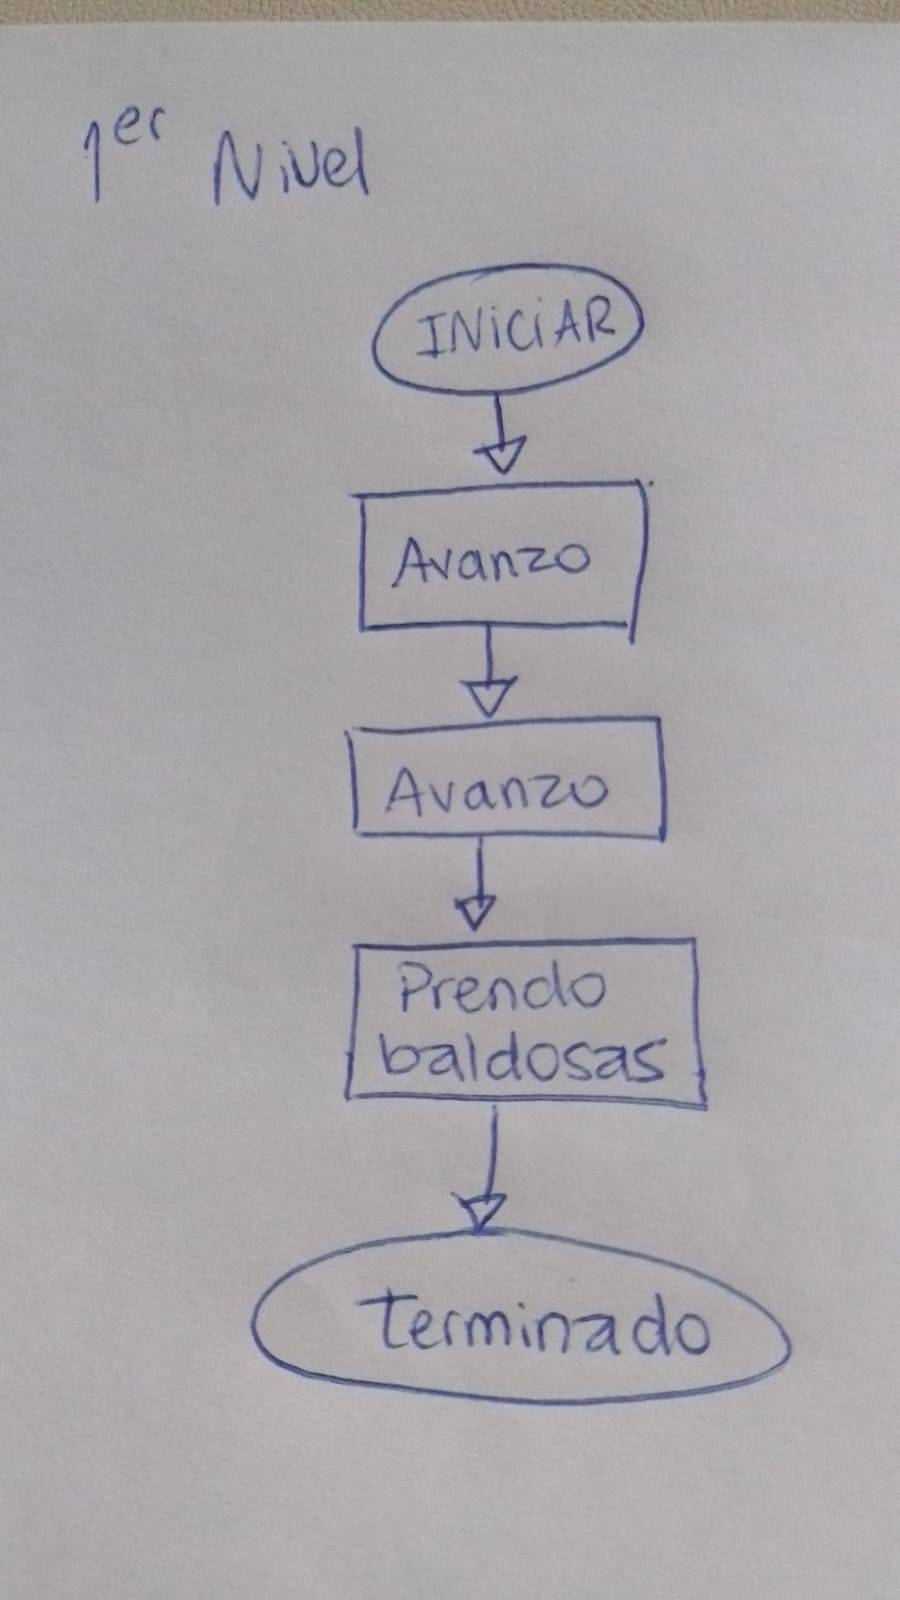 1er Nivel
INiCiAR
Avanzo
Avanzo
Prendo
baldosas
terminado